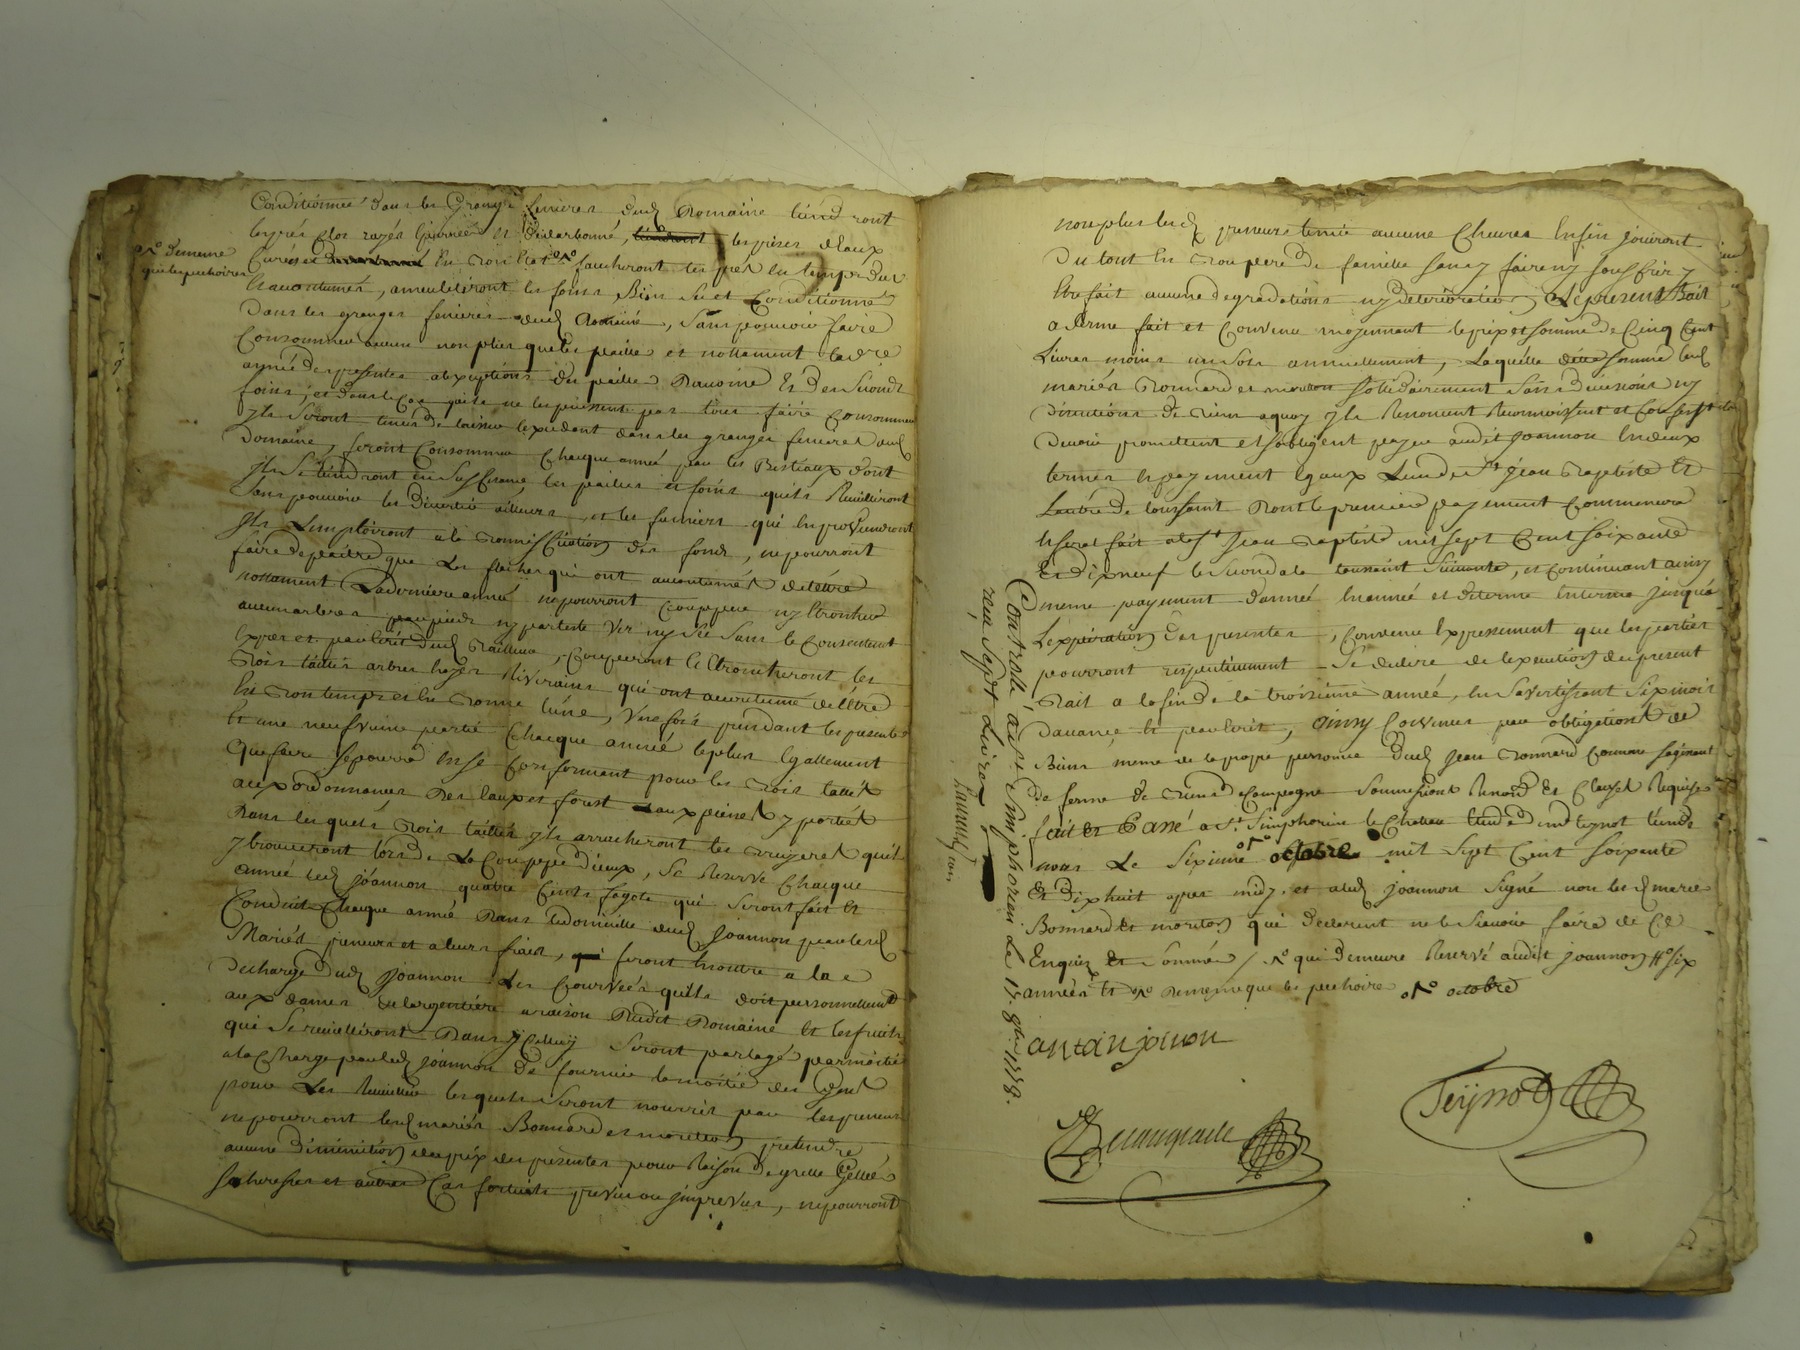 Conditionnés dans les Granges fenieres dud Domaine tiendront
les prés clos razés Epierrés et les prises deaux
*o Dememe que les puchoires
curées en Bon Etat *o faucheront les prés en temps dus
et accoutumés, ameubliront les foins Bien Sec et Conditionné
Dans les granges fenieres dud Domaine, Sans pouvoir faire
Consommer aucun non plus que les paille et nottament la dre
année des presentes a lexception des paille Davoine Et des Seconds
foins, et dans le Cas quils ne les puissent pas tous faire Consommer
jls Seront tenus de laisser lexcedent dans les granges fenieres dud
Domaine, Seront Consommer Chaque année par les Bestiaux dont
jls Se tiendront en les pailles et foins quils Receuilliront
Sans pouvoir les Divertir ailleurs, et les fumiers qui en proviendront
jls Lemploiront a la Bonnification des fonds, ne pourront
faire depaitre que Les qui ont accoutumés de lettre
nottament La derniere année ne pourront Couper ny Etroncher
aucuns arbres par pieds ny par teste Ver ny Sec Sans le Consentement
Expres et par écrit dud Bailleur, Couperont et Etroncheront les
Bois taillis arbres hayes Riverains qui ont accoutumé de lettre
En Bon temps et En Bonne lune, Une fois pendant les presentes
Et une neufvieme partie Chaque année le plus Egallement
que faire Se pourra En Se Conformant pour les Bois taillis
aux ordonnances Des Eaux et forest aux peines y portées
Dans lesquels Bois taillis jls arracheront les Bruyeres quils
y trouveront lors de La Coupe diceux, Se Reserve Chaque
année led joannon quatre Cents fagots qui Seront fait et
Conduit Chaque année Dans le domicille dud joannon par lesd
Mariés preneurs et a leurs frais, Seront Encore a la
decharge dud joannon Les Courvées quils doit personnellement
aux dames de largentiere a raison Dudit Domaine Et les fruits
qui Se receuilliront Dans jCelluy Seront partagé par moitié
a la Charge par led joannon de fournir la moitié des Gens
pour Les Receuillir lesquels Seront nourris par les preneurs
ne pourront lesd mariés Bonnard et moreton pretendre
aucune Diminution du prix des presentes pour Raison de grelle Gellée
Secheresses et autres Cas fortuits prevus ou jmprevus, ne pourront
non plus lesd preneurs tenir aucune Chevres Enfin jouiront
Du tout En Bon pere de famille Sans y faire ny Souffrir y
Etre fait aucune degradations ny deterioration, Le present Bail
a ferme fait et Convenu moyennant le prix et Somme de Cinq Cent
Livres moins un Sols annuellement, Laquelle ditte Somme lesd
mariés Bonnard et moreton Solidairement Sans division ny
discution de Biens a quoy jls Renoncent Reconnoissent et Confessent
devoir promettent et Sobligent payer audit joannon En deux
termes et payement Egaux Lun des a St jean Baptiste Et
Lautre de toussaint Dont le premier payement Commencera
et Serat fait a la St Jean Baptiste mil Sept Cent Soixante
Et dix neuf le Second a la toussaint Suivante, et Continuant ainsy
meme payement dannée En année et de terme En terme jusqua
Lexpiration des presentes, Convenu Expressement que les parties
pourront respectivement Se dedire de lexecution du present
Bail a la fin de la troizieme année, En Savertissant Six mois
Davance et par Ecrit, ainsy Convenus par obligations de
Biens meme de la propre personne dud Jean Bonnard Comme Sagissant
de ferme de Biens de Campagne Soumissions Renonns Et Clauses Requises
fait Et Passé a St Simphorien le Chateau Etude de md teynot l'un de
nous Le Sixieme *o octobre mil Sept Cent Soixante
Et dix huit apres midy, et a led joannon Signé non lesd mariés
Bonnard et moreton qui declarent ne le Scavoir faire de Ce
Enquis et Sommés / *o qui Demeure Reservé audit joannon
années Et *o Dememe que les puchoires *o octobre
antoin joanon
Teyssot
Controllé a St Simphorien Le 15. 8bre 1778.
reçu Sept Livres